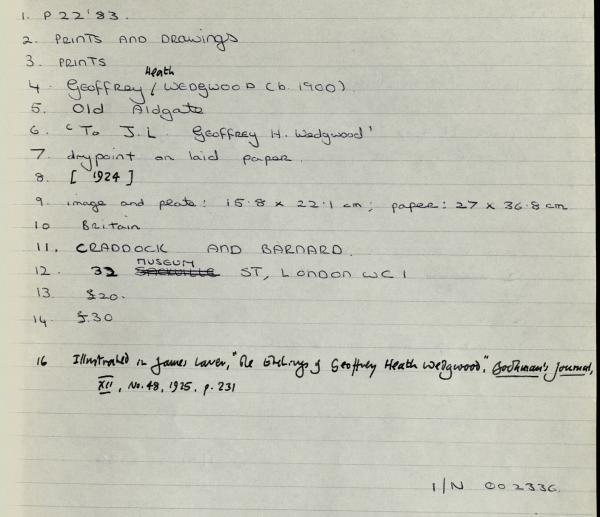 1. P 22'83.
2. PRINTS AND DRAWINGS
3. PRINTS
4. Geoffrey / Heath WEDGWOOD (b. 1900)
5. Old Aldgate
6. 'To J.L. Geoffrey H. Wedgwood'
7. drypoint on laid paper.
8. [1924]
9. image and plate: 15.8 x 22.1 cm; paper: 27 x 36.8 cm
10 Britain
11. CRADDOCK AND BARNARD.
12. 32 SACKVILLE MUSEUM ST, LONDON WC1
13. £20.
14. £30
16 Illustrated in James Laver, "The Etchings of Geoffrey Heath Wedgwood", Bookman's Journal,
XII, No. 48, 1925, p. 231
I/N 002336.